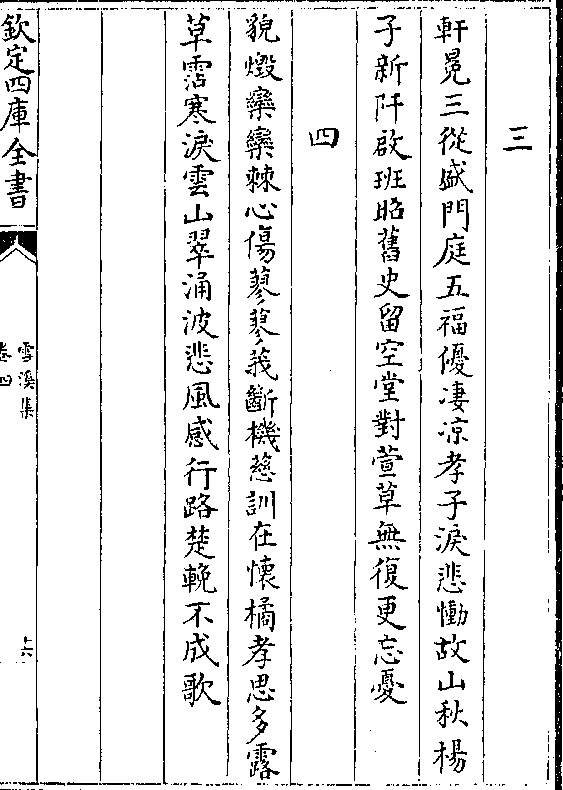 三
軒冕三從盛門庭五福優凄凉孝子淚悲慟故山秋楊
子新阡啟班昭舊史留空堂對萱草無復更忘憂
四
貌燬欒欒棘心傷蓼蓼莪斷機慈訓在懷橘孝思多露
草霑寒淚雲山翠涌波悲風感行路楚輓不成歌
欽定四庫全書
雪溪集
卷四